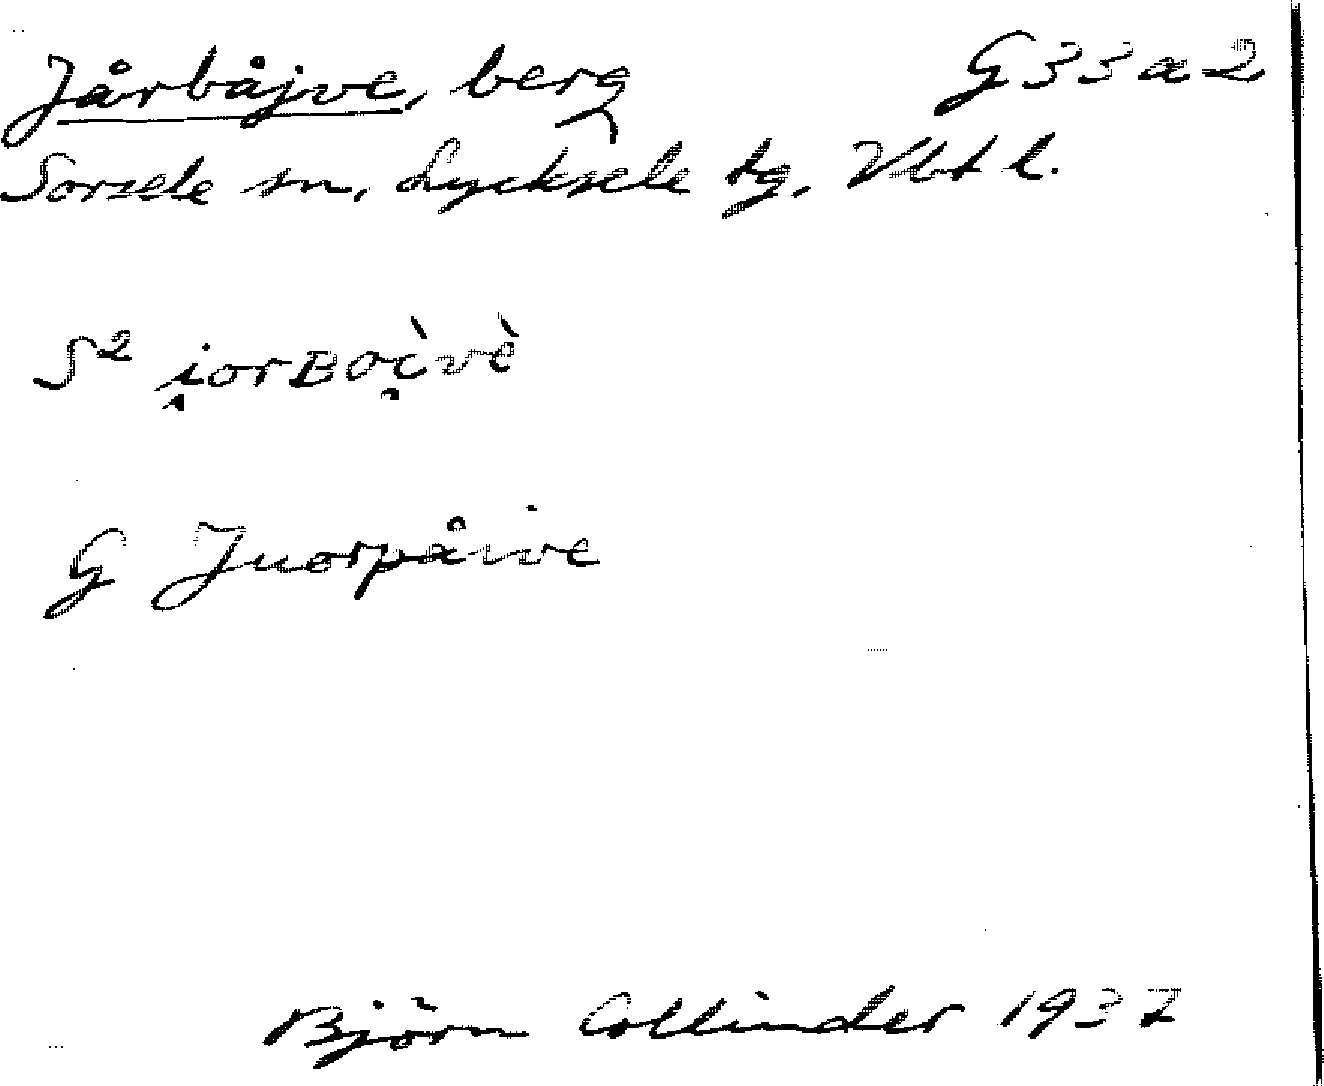 Jårbåjve, berg G33a2
Sorsele sn, Lycksele tg, Vbt l.
S² i̭orBOì̭vè
G Juorpåive
Björn Collinder 1937